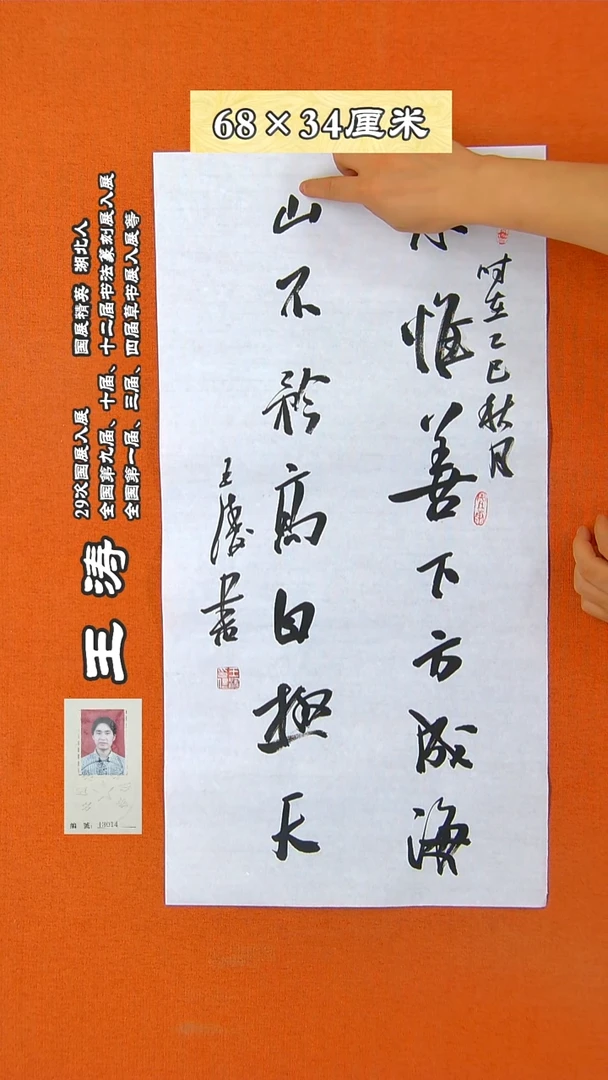 68×34厘米
水惟善下方成海
山不矜高自极天
时在乙巳秋月
王涛书
王涛
29次国展入展 国展精英 湖北人
全国第九届、十届、十二届书法篆刻展入展
全国第一届、三届、四届草书展入展等
编号: